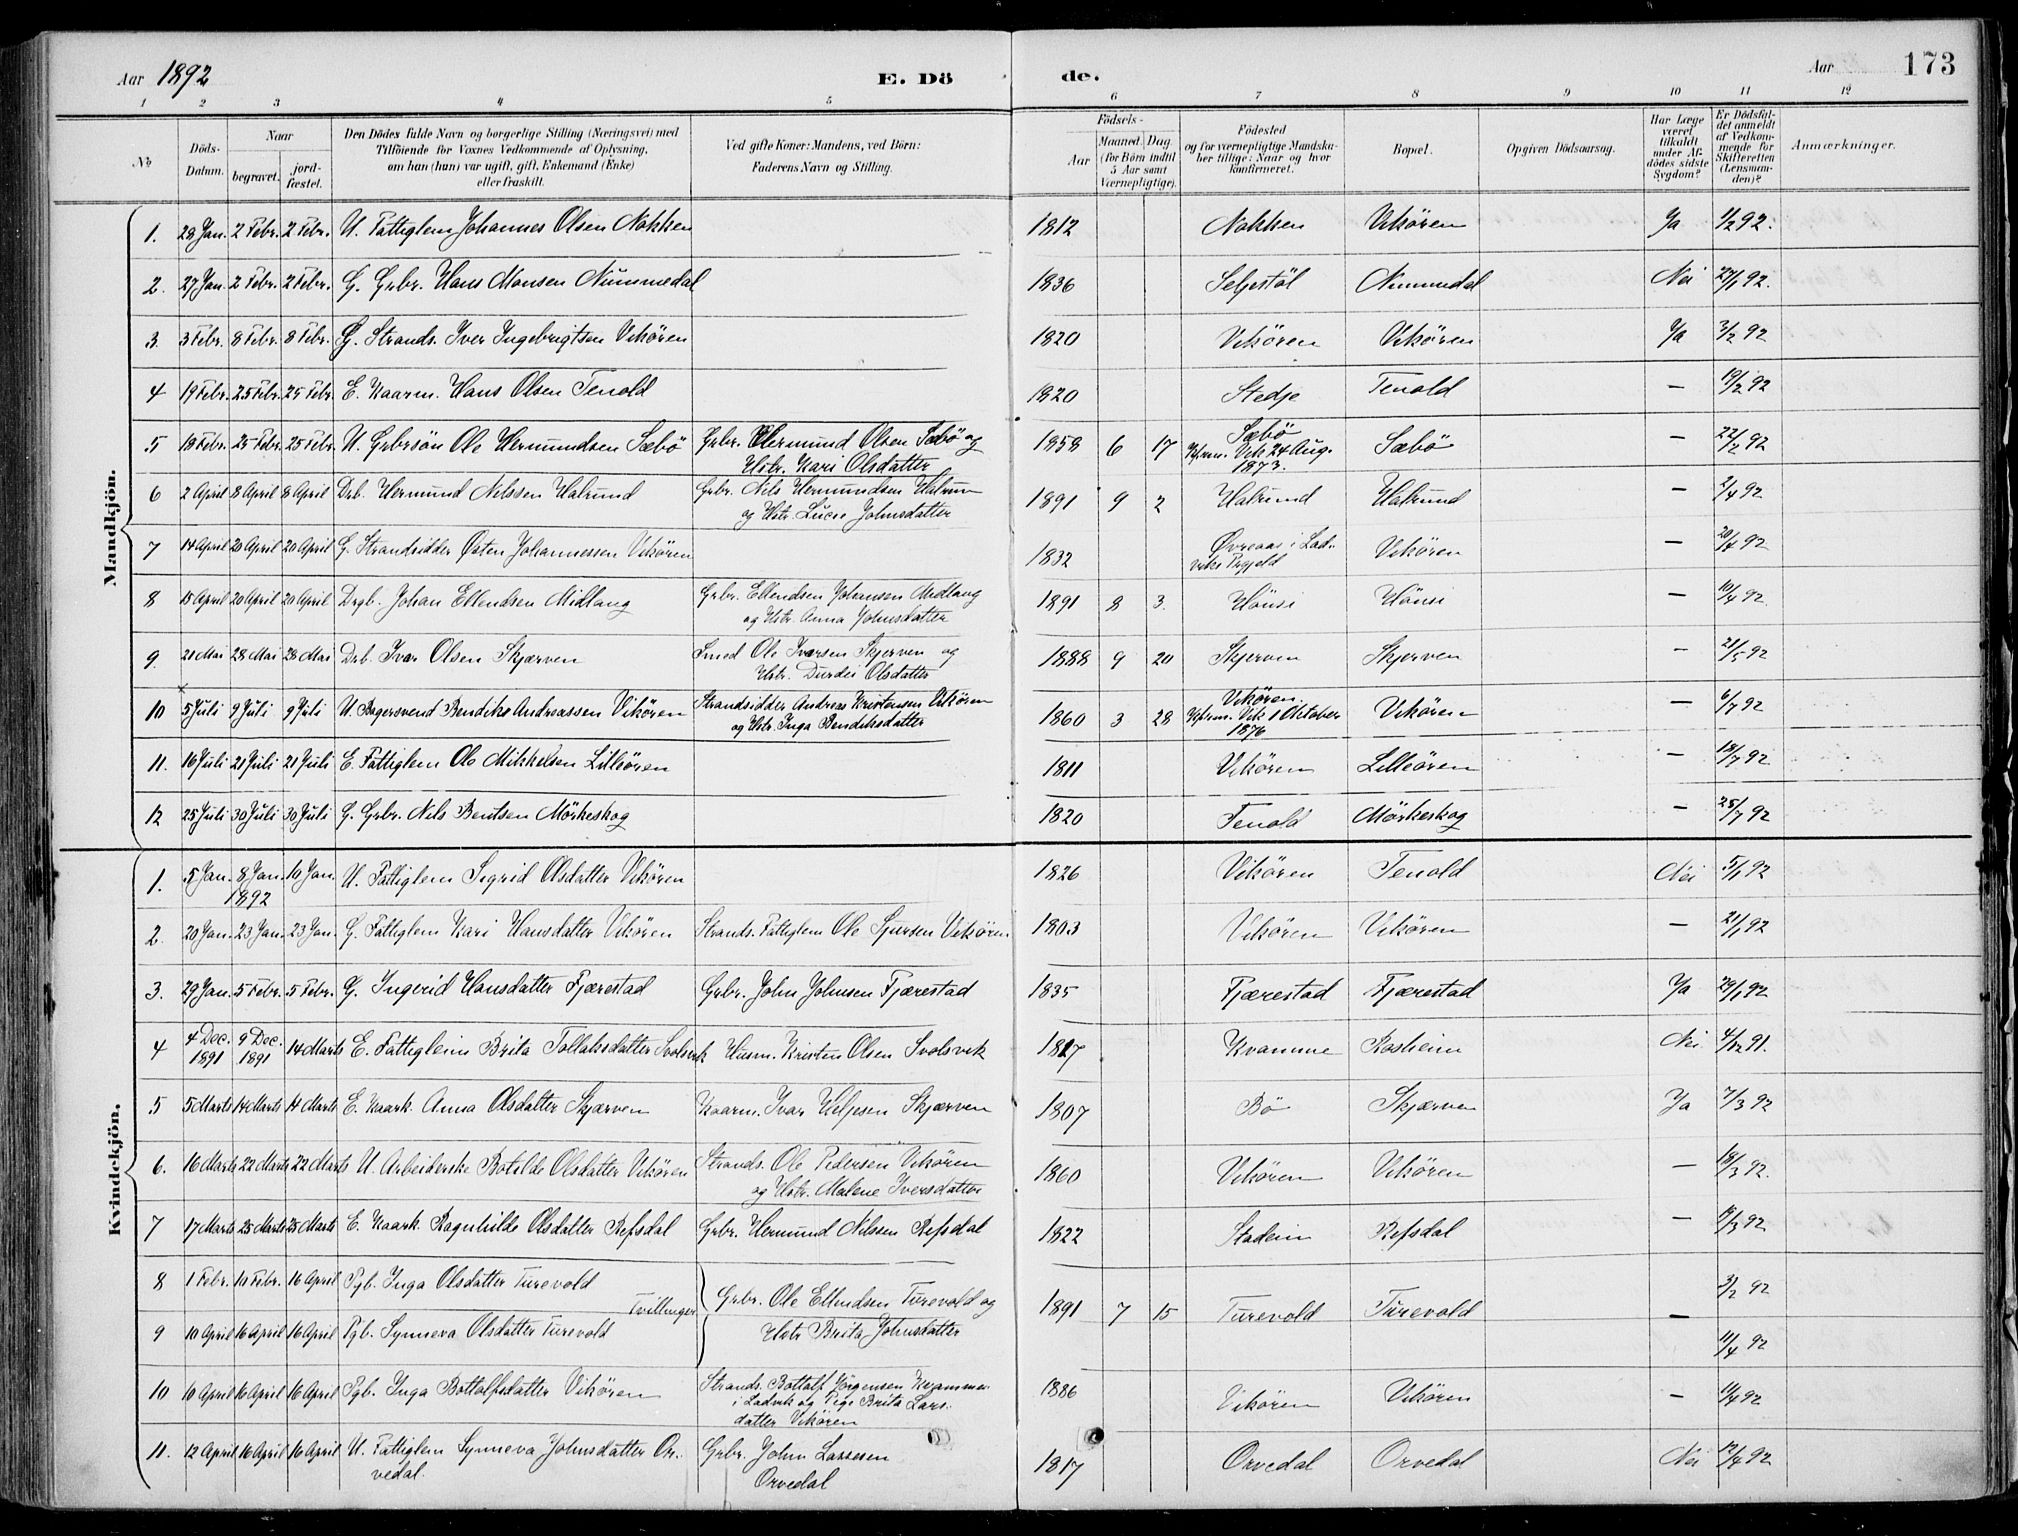 Aar 1892 E. Dö de. Aar 173
1 2 3 4 5 6 7 8 9 10 11 12
No
Döds-
Datum.
Naar
begravet.
jord-
fæstet.
Den Dödes fulde Navn og borgerlige Stilling (Næringsvei) med
Tilföiende för Voxnes Vedkommende af Oplysning,
om han (hun) var ugift, gift, Enkemand (Enke)
eller fraskilt.
Ved gifte Koner: Mandens, ved Börn:
Faderens Navn og Stilling.
Födsels-
Aar
Maaned. Dag.
(for Börn indtil
5 Aar samt
Værnepligtige).
Födested
og for værnepligtige Mandska-
ber tillige: Naar og hvor
konfirmeret.
Bopæl.
Opgiven Dödsaarsag.
Har Læge
været
tilkaldt
under Af-
dödes sidste
Sygdom?
Er Dödsfal-
det anmeldt
af Vedkom-
mende for
Skifteretten
(Lensman-
den)?
Anmærkninger.
Mandkjön.
1. 28 Jan. 2 Febr. 2 Febr. U. Fattiglem Johannes Olsen Nakken 1812 Nakken Vikören Ja 1/2 92.
2. 27 Jan. 2 Febr. 2 Febr. G. Grbr. Hans Monsen Nummedal 1836 Seljestöl Nummedal Nei 27/1 92.
3. 3 Febr. 8 Febr. 8 Febr. G. Strands. Iver Ingebrigtsen Vikören 1820 Vikören Vikören Ja 3/2 92
4 19 Febr. 25 Febr. 25 Febr. E. Kaarm. Hans Olsen Tenold 1820 Stedje Tenold — 19/2 92
5 18 Febr. 25 Febr. 25 Febr. U. Grbrsön Ole Hermundsen Sæbö Grbr. Hermund Olsen Sæbö og
Hstr. Kari Olsdatter 1858 6 17 Sæbö
Kfrm. Vik 24 Aug.
1873. Sæbö — 22/2 92
6 2 April 8 April 8 April Drb. Hermund Nilssen Halrund Grbr. Nils Hermundsen Halrun
og Hstr. Lucie Johnsdatter 1891 9 2 Halrund Halrund — 2/4 92
7 14 April 20 April 20 April G. Strandsidder Östen Johannessen Vikören 1832 Övreaas i Lad-
viks Prgjeld Vikören — 20/4 92
8 15 April 20 April 20 April Drgb. Johan Ellendsen Midlang Grbr. Ellendsen Johansen Midlang
og Hstr. Anna Johnsdatter 1891 8 3. Hönsi Hönsi — 19/4 92.
9. 21 Mai 28 Mai 28 Mai Drb. Ivar Olsen Skjærven Smed Ole Iversen Skjerven og
Hstr. Durdei Olsdatter 1888 9 20 Skjerven Skjerven — 21/5 92
10 5 Juli 9 Juli 9 Juli U. Bagersvend Bendiks Andreassen Vikören Strandsidder Andreas Kristensen Vikören
og Hstr. Inga Bendiksdatter 1860 3 28 Vikören
Kfrm. Vik 1 Oktober
1876 Vikören — 6/7 92
11. 16 Juli 21 Juli 21 Juli E. Fattiglem Ole Mikkelsen Lilleören 1811 Vikören Lilleören — 18/7 92
12 25 Juli 30 Juli 30 Juli G. Grbr. Nils Bentsen Mörkeskog 1820 Tenold Mörkeskog — 25/7 92
Kvindekjön.
1. 5 Jan. 8 Jan.
1892 10 Jan. U. Fattiglem Sigrid Olsdatter Vikören 1826 Vikören Tenold Nei 5/1 92
2. 20 Jan. 23 Jan. 23 Jan. G. Fattiglem Kari Hansdatter Vikören Strands. Fattiglem Ole Sjursen Vikören 1803 Vikören Vikören — 21/1 92
3. 29 Jan. 5 Febr. 5 Febr. G. Ingerid Hansdatter Fjærestad Grbr. John Johnsen Fjærestad 1835 Fjærestad Fjærestad Ja 29/1 92
4 4 Dec.
1891 9 Dec.
1891 14 Marts E. Fattiglem Brita Tollaksdatter Svolsvik Husm. Kristen Olsen Svolsvik 1817 Kvamme Rosheim Nei 4/12 91.
5 5 Marts 14 Marts 14 Marts E. Kaark. Anna Olsdatter Skjærven Kaarm. Ivar Helgesen Skjærven 1807 Bö Skjærven Ja 7/3 92
6. 16 Marts 22 Marts 22 Marts U. Arbeiderske Botilde Olsdatter Vikören Strands. Ole Pedersen Vikören
og Hstr. Malene Iversdatter 1860 Vikören Vikören — 18/3 92.
7 17 Marts 25 Marts 25 Marts E. Kaark. Ragnhilde Olsdatter Refsdal Grbr. Hermund Nilssen Refsdal 1822 Stadein Refsdal —
8 1 Febr. 10 Febr. 16 April Pgb. Inga Olsdatter Turevold 3/2 92
Tvillinger Grbr. Ole Ellendsen Turevold og
Hstr Brita Johnsdatter 1891 7 15 Turevold Turevold —
9 10 April 16 April 16 April Pgb. Synneva Olsdatter Turevold 11/4 92
10 10 April 16 April 16 April Pgb. Inga Bottolfsdatter Vikören Strands. Bottolf Jörgensen Kvamme
i Ladvik og Pige Brita Lars-
datter Vikören 1886 Vikören Vikören — 11/4 92
11. 12 April 16 April 16 April U. Fattiglem Synneva Johnsdatter Or-
vedal. Grbr. John Lassesen
Orvedal 1817 Orvedal Orvedal Nei 12/4 92